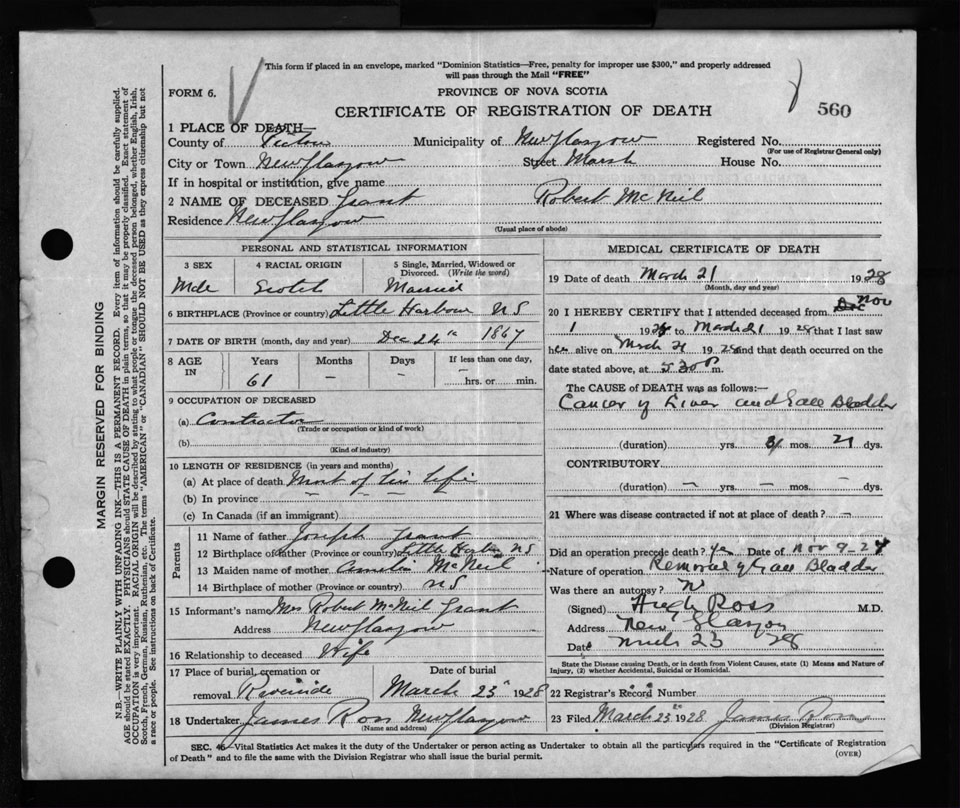 This form if placed in an envelope, marked "Dominion Statistics—Free, penalty for improper use $300," and properly addressed
will pass through the Mail "FREE"
FORM 6.
PROVINCE OF NOVA SCOTIA
CERTIFICATE OF REGISTRATION OF DEATH
560
1 PLACE OF DEATH
County of Pictou Municipality of New Glasgow Registered No.
(For use of Registrar General only)
City or Town New Glasgow Street Marsh House No.
If in hospital or institution, give name
2 NAME OF DECEASED Grant Robert McNeil
Residence New Glasgow
(Usual place of abode)
PERSONAL AND STATISTICAL INFORMATION
3 SEX 4 RACIAL ORIGIN 5 Single, Married, Widowed or Divorced. (Write the word)
Male Scotch Married
6 BIRTHPLACE (Province or country) Little Harbour N S
7 DATE OF BIRTH (month, day and year) Dec 24th 1867
8 AGE IN Years Months Days If less than one day,
61 — — — hrs. or min.
9 OCCUPATION OF DECEASED
(a) Contractor
(Trade or occupation or kind of work)
(b)
(Kind of industry)
10 LENGTH OF RESIDENCE (in years and months)
(a) At place of death Most of his life
(b) In province — — —
(c) In Canada (if an immigrant)
Parents
11 Name of father Joseph Grant
12 Birthplace of father (Province or country) Little Harbor NS
13 Maiden name of mother McNeil
14 Birthplace of mother (Province or country) NS
15 Informant's name Mrs Robert McNeil Grant
Address New Glasgow
16 Relationship to deceased Wife
17 Place of burial, cremation or removal Riverside
Date of burial March 23rd 1928
18 Undertaker James Ross New Glasgow
(Name and address)
MEDICAL CERTIFICATE OF DEATH
19 Date of death March 21 1928
(Month, day and year)
20 I HEREBY CERTIFY that I attended deceased from Nov
1 19 to March 21 1928 that I last saw
h alive on March 21 1928 and that death occurred on
date stated above, at 5 30 P m.
The CAUSE OF DEATH was as follows:—
Cancer of Liver and Gall Bladder
(duration) yrs. mos. 21 dys.
CONTRIBUTORY
(duration) — yrs. — mos. — dys.
21 Where was disease contracted if not at place of death? —
Did an operation precede death? Yes Date of Nov 9-27
Nature of operation Removal of Gall Bladder
Was there an autopsy? No
(Signed) Hugh Ross M.D.
Address New Glasgow
Date March 23 28
State the Disease causing Death, or in death from Violent Causes, state (1) Means and Nature of
Injury, (2) whether Accidental, Suicidal or Homicidal.
22 Registrar's Record Number
23 Filed March 23rd 1928 James Ross
(Division Registrar)
SEC. 46—Vital Statistics Act makes it the duty of the Undertaker or person acting as Undertaker to obtain all the particulars required in the "Certificate of Registration
of Death" and to file the same with the Division Registrar who shall issue the burial permit.
(OVER)
MARGIN RESERVED FOR BINDING
N.B.—WRITE PLAINLY, WITH UNFADING INK—THIS IS A PERMANENT RECORD. Every item of information should be carefully supplied.
AGE should be stated EXACTLY. PHYSICIANS should STATE CAUSE OF DEATH in plain terms, so that it may be properly classified. Exact statement of
OCCUPATION is very important. RACIAL ORIGIN will be described by stating to what people or tongue the deceased person belonged, whether English, Irish,
Scotch, French, German, Russian, Ruthenian, etc. The terms "AMERICAN" or "CANADIAN" SHOULD NOT BE USED as they express citizenship but not
a race or people. See instructions on back of Certificate.